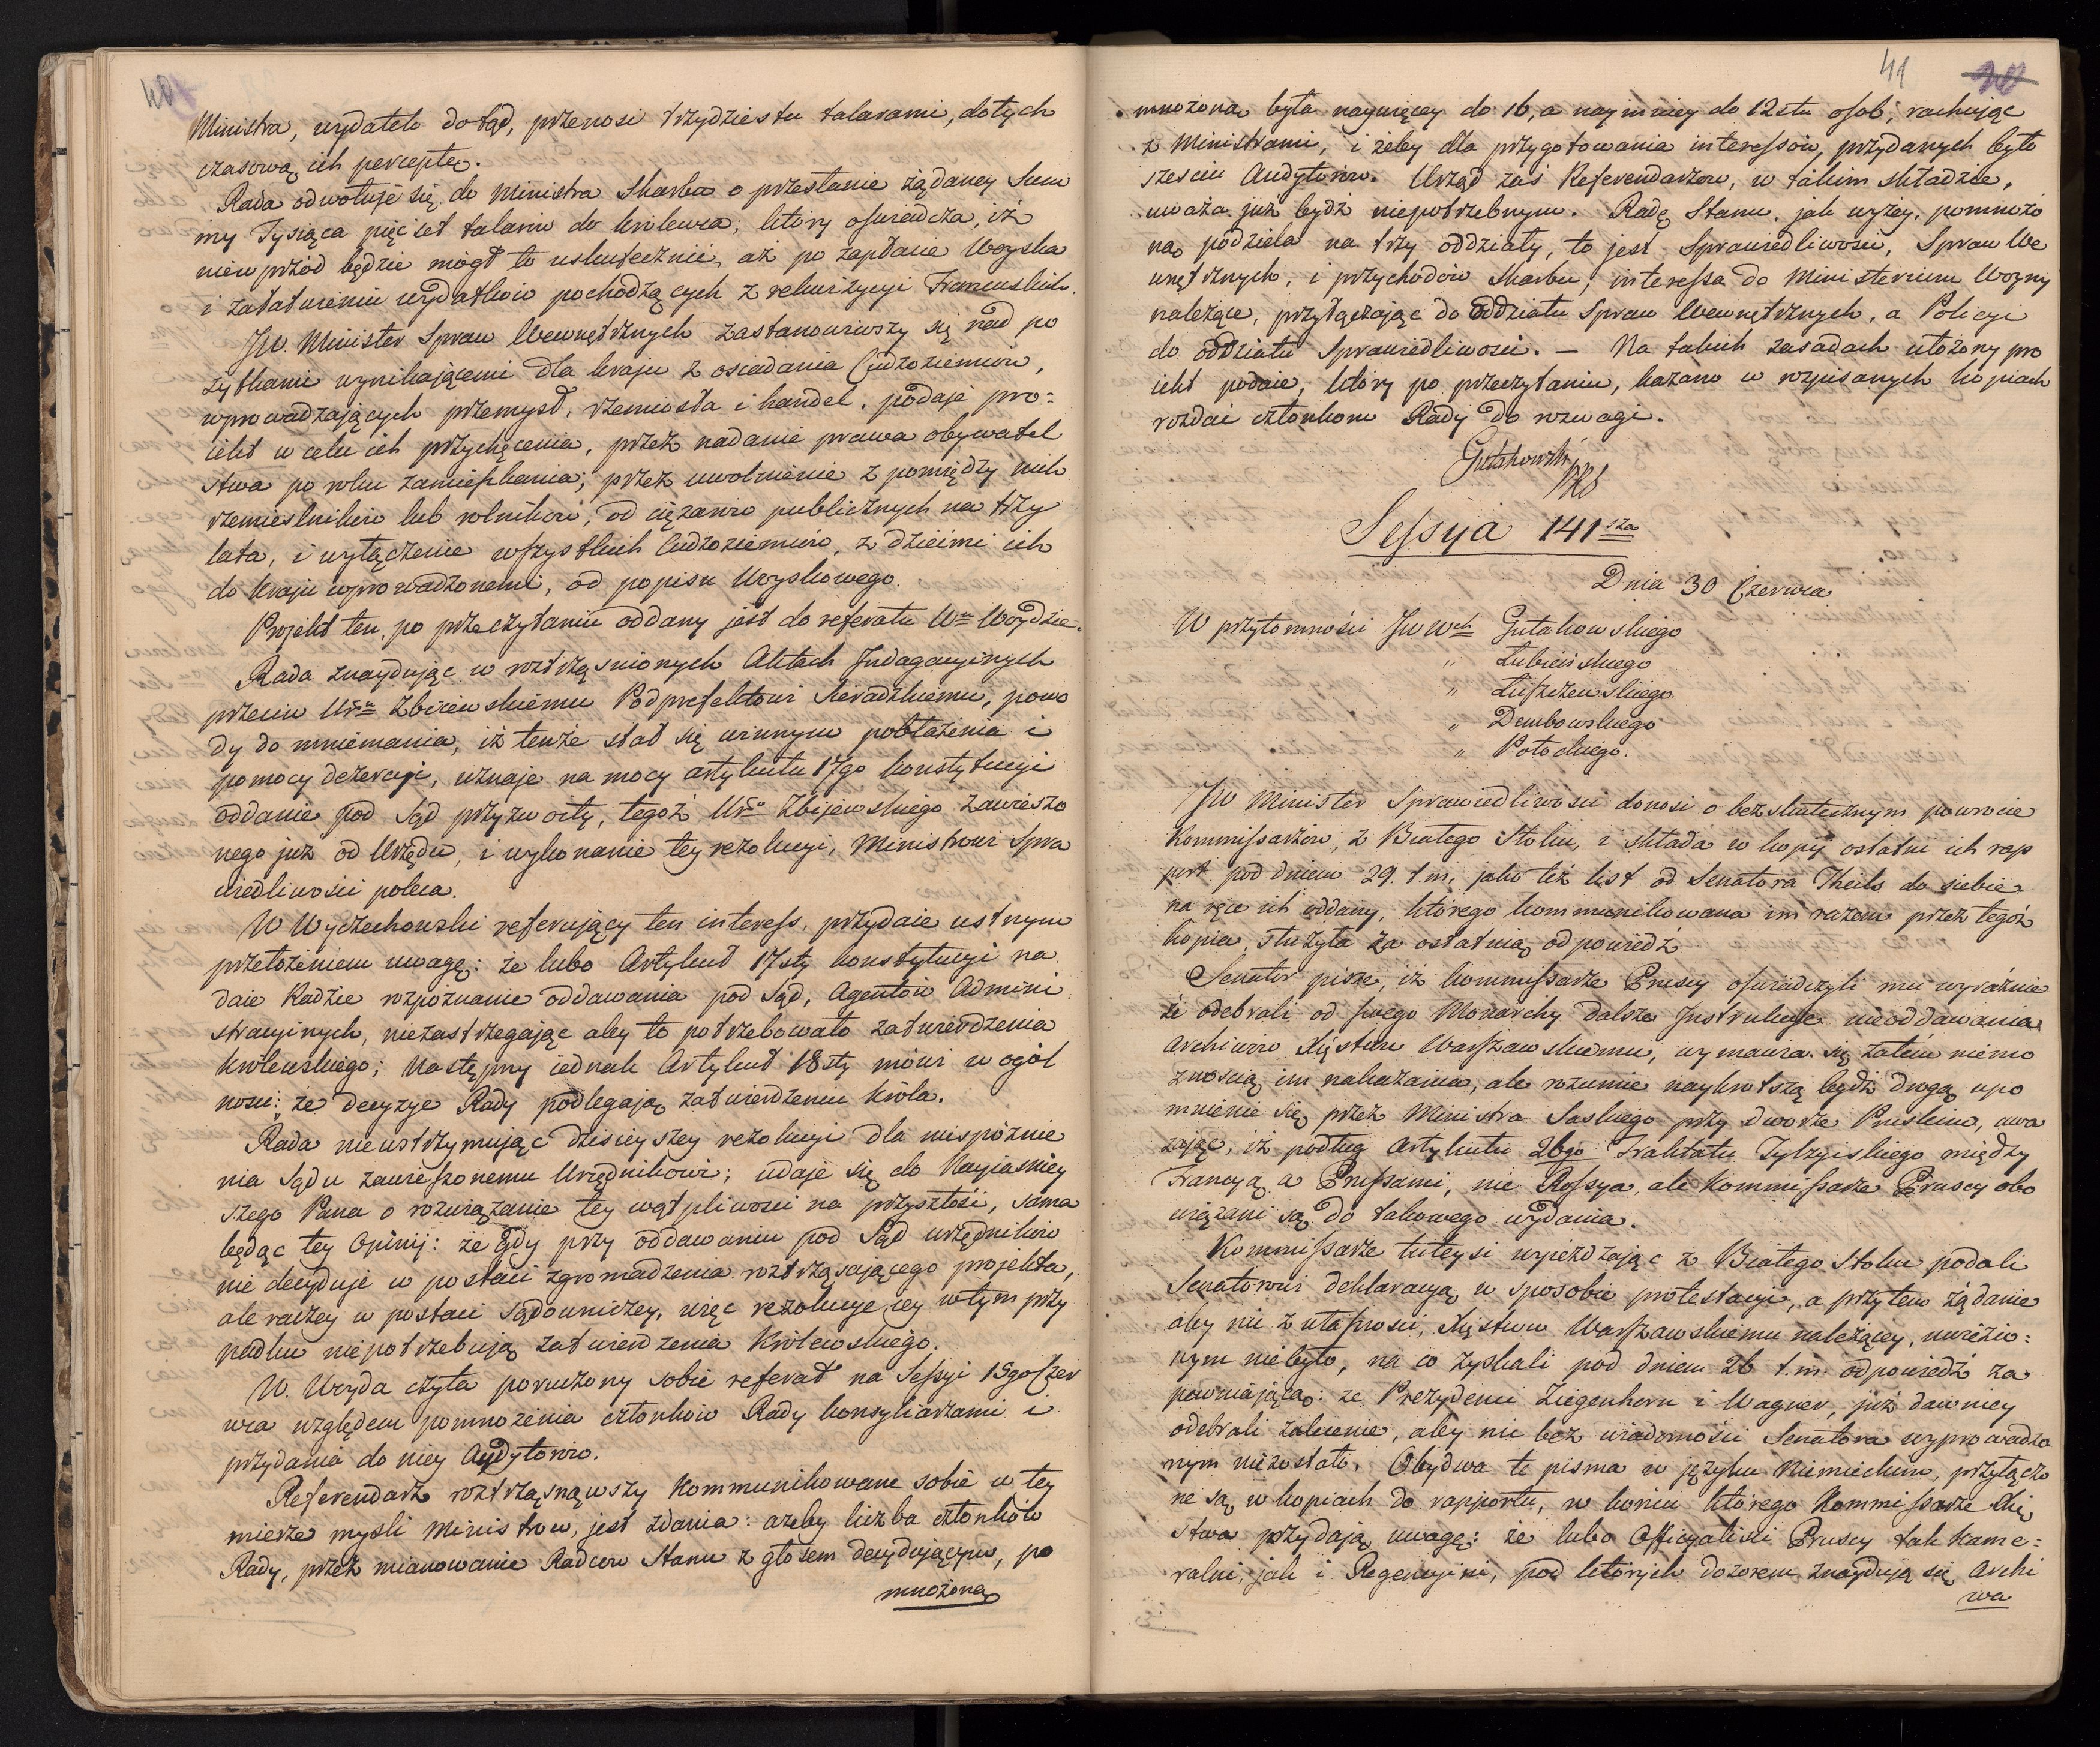 40
Ministra, wydatek dotąd, przenosi trzydziestu talarami, dotych
czasową ich perceptę.
Rada odwołuje się do Ministra Skarbu o przesłanie żądaney Sum
my Tysiąca pięćset talarów do Królewca; który oświadcza, iż
nieuprzód będzie mógł to uskutecznić, aż po zapłacie Woyska
i załatwieniu wydatków pochodzących z rekwizycyi Francuskich.
JW. Minister Spraw Wewnętrznych zastanowiwszy się nad po
żytkami wynikającemi dla kraju z osiadania Cudzoziemców,
wprowadzających przemysł, rzemiosła i handel, podaje pro=
iekt w celu ich przychęcenia, przez nadanie prawa obywatel
stwa po roku zamieszkania; przez uwolnienie z pomiędzy nich
rzemieslników lub rolników, od ciężarów publicznych na trzy
lata, i wyłączenie wszystkich Cudzoziemców, z dziećmi ich
do kraju wprowadzonemi, od popisu Woyskowego.
Projekt ten, po przeczytaniu oddany jest do referatu Wu Woydzie.
Rada znayduiąc w roztrząśnionych Aktach Indagacyinych
przeciw Ur Zbijewskiemu Podprefektowi Sieradzkiemu, powo
dy do mniemania, iż tenże stał się winnym pobłażenia i
pomocy dezercyi, uznaje na mocy artykułu 17go konstytucyi
oddanie pod Sąd przyzwoity, tegoż Ur Zbijewskiego zawieszo
nego już od Urzędu, i wykonanie tey rezolucyi, Ministrowi Spra
wiedliwości poleca.
W Wyczechowski referujący ten interess, przydaie ustnym
przełożeniem uwagę: że lubo Artykuł 17sty konstytucyi na
daie Radzie rozpoznanie oddawania pod Sąd, Agentów Admini
stracyinych, niezastrzegając aby to potrzebowało zatwierdzenia
Królewskiego; Następny iednak Artykuł 18sty mówi w ogól
nosci: że decyzye Rady podlegają zatwierdzeniu Króla.
Rada nieustrzymując dzisieyszey rezolucyi dla niespóźnie
nia Sądu zawieszonemu Urzędnikowi; udaje się do Nayiaśniey
szego Pana o rozwiązanie tey wątpliwości na przyszłość, sama
będąc tey Opinij: że gdy przy oddawaniu pod Sąd urzędników
nie decyduje w postaci zgromadzenia roztrząsającego projekta,
ale raczey w postaci Sądowniczey, więc rezolucye iey w tym przy
padku niepotrzebują zatwierdzenia Królewskiego.
W. Woyda czyta poruczony sobie referat na Sessyi 15go Czer
wca względem pomnożenia członków Rady konsyliarzami i
przydania do niey Audytorów.
Referendarz roztrząsnąwszy kommunikowane sobie w tey
mierze mysli Ministrów, jest zdania: ażeby liczba członków
Rady, przez mianowanie Radców Stanu z głosem decydującym, po
mnożona
41
mnożona była naywięcey do 16, a naymniey do 12stu osób, rachując
z Ministrami, i żeby dla przygotowania interessów, przydanych było
sześciu Audytorów. Urząd zaś Referendarzów, w takim składzie,
uważa już bydź niepotrzebnym. Radę Stanu, jak wyżey pomnożo
ną podziela na trzy oddziały, to jest Sprawiedliwości, Spraw We
wnętrznych, i przychodów Skarbu; interessa do Ministerium Woyny
należące, przyłączając do Oddziału Spraw Wewnętrznych, a Policyi
do oddziału Sprawiedliwości. — Na takich zasadach ułożony pro
iekt podaie, który po przeczytaniu, kazano w rozpisanych kopiach
rozdać członkom Rady do rozwagi.
Gutakowski
Sessya 141sza
Dnia 30 Czerwca
W przytomności JW Wch Gutakowskiego
" Łubieńskiego
" Łuszczewskiego
" Dembowskiego
" Potockiego.
JW Minister Sprawiedliwości donosi o bezskutecznym powrocie
Kommissarzów, z Białego Stoku, i składa w kopij ostatni ich rap
port pod dniem 29. t.m. jako też list od Senatora Theils do siebie
na ręce ich oddany, którego kommunikowana im razem przez tegoż
kopia, służyła za ostatnią odpowiedź.
Senator pisze, iż kommissarze Pruscy oświadczyli mu wyraźnie
że odebrali od swego Monarchy dalsze Instrukcye nieoddawania
Archiwów Xięstwu Warszawskiemu, wymawia się zatém niemo
żnością im nakazania, ale rozumie naykrótszą bydź drogą upo
mnienie się przez Ministra Saskiego przy dworze Pruskim, uwa
żając, iż podług Artykułu 26go Traktatu Tylzyiskiego między
Francyą a Prussami, nie Rossya, ale Kommissarze Pruscy obo
wiązani są do takowego wydania.
Kommissarze tuteysi wyjeżdzając z Białego Stoku podali
Senatorowi deklaracyą w sposobie protestacyi, a przytem żądanie
aby nic z własności, Xięstwu Warszawskiemu należącey, uwiezio=
nym niebyło, na co zyskali pod dniem 26 t.m. odpowiedź za
pewniającą: że Prezydenci Ziegenhorn i Wagner, już dawniey
odebrali zalecenie, aby nic bez wiadomości Senatora wyprowadzo
nym niezostało. Obydwa te pisma w języku Niemieckim, przyłączo
ne są w kopiach do rapportu, w końcu którego Kommissarze Xię
stwa przydają uwagę: że lubo Officyaliści Pruscy tak Kame=
ralni, jak i Regencyini, pod których dozorem znaydują się Archi
wa